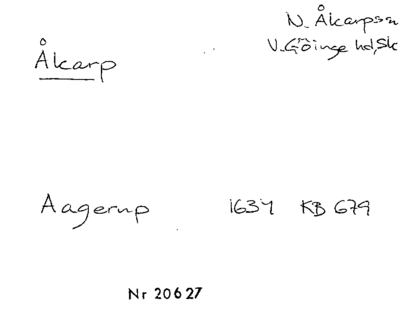 Åkarp
N. Åkarpssn
V. Göinge hd, Sk
Aagerup 1634 KB 679
Nr 20627